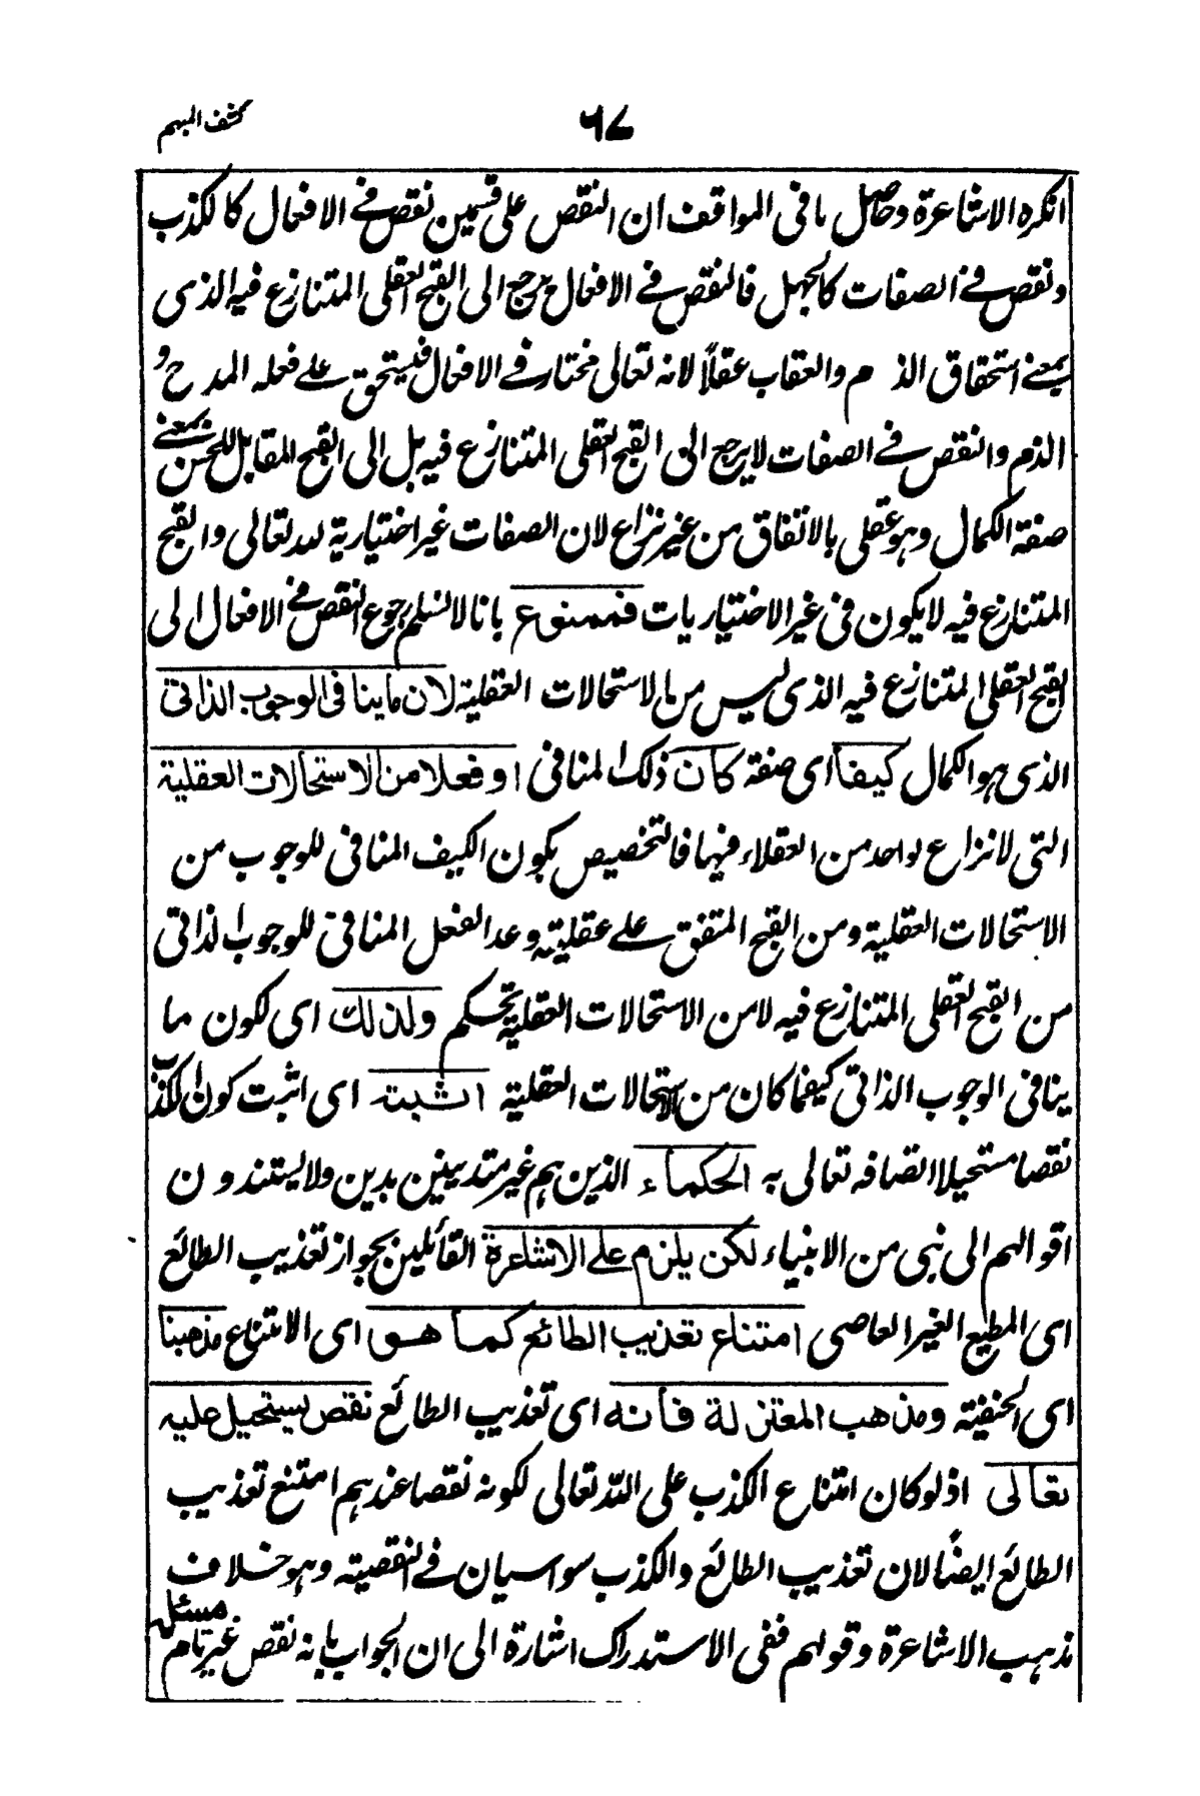 كشف المبهم
٦٧
انكره الاشاعرة وحاصل ما فى المواقف ان النقص على قسمين نقص فے الافعال كالكذب
ونقص فے الصفات كالجهل فالنقص فے الافعال يرجع الى القبح العقلى المتنازع فيه الذى
بمعنے استحقاق الذم والعقاب عقلاً لانه تعالى مختار فے الافعال فيستحق علے فعله المدح و
الذم والنقص فے الصفات لا يرجع الى القبح العقلى المتنازع فيه بل الى القبح المقابل للحسن بمعنے
صفة الكمال وهو عقلى بالاتفاق من غير نزاع لان الصفات غير اختيارية لله تعالى والقبح
المتنازع فيه لا يكون فى غير الاختياريات فممنوع بانا لا نسلم رجوع النقص فے الافعال الى
القبح العقلى المتنازع فيه الذى ليس من الاستحالات العقلية لان ما ينافى الوجوب الذاتى
الذى هو الكمال كيفا اى صفة كان ذلك المنافى او فعلا من الاستحالات العقلية
التى لا نزاع لواحد من العقلاء فيها فالتخصيص بكون الكيف المنافى للوجوب من
الاستحالات العقلية ومن القبح المتفق علے عقليته وعد الفعل المنافى للوجوب الذاتى
من القبح العقلى المتنازع فيه لا من الاستحالات العقلية تحكم ولذلك اى لكون ما
ينافى الوجوب الذاتى كيفما كان من الاستحالات العقلية اثبته اى اثبت كون الكذب
نقصا مستحيلا اتصافه تعالى به الحكماء الذين هم غير متدينين بدين ولا يستندون
اقوالهم الى نبى من الانبياء لكن يلزم علے الاشاعرة القائلين بجواز تعذيب الطائع
اى المطيع الغير العاصى امتناع تعذيب الطائع كما هو اى الامتناع مذهبنا
اى الحنفية ومذهب المعتزلة فانه اى تعذيب الطائع نقص يستحيل عليه
تعالى اذ لو كان امتناع الكذب على الله تعالى لكونه نقصا عندهم امتنع تعذيب
الطائع ايضًا لان تعذيب الطائع والكذب سواسيان فے النقصية وهو خلاف
مذهب الاشاعرة وقولهم ففى الاستدراك اشارة الى ان الجواب بانه نقص غير تام مسئلة